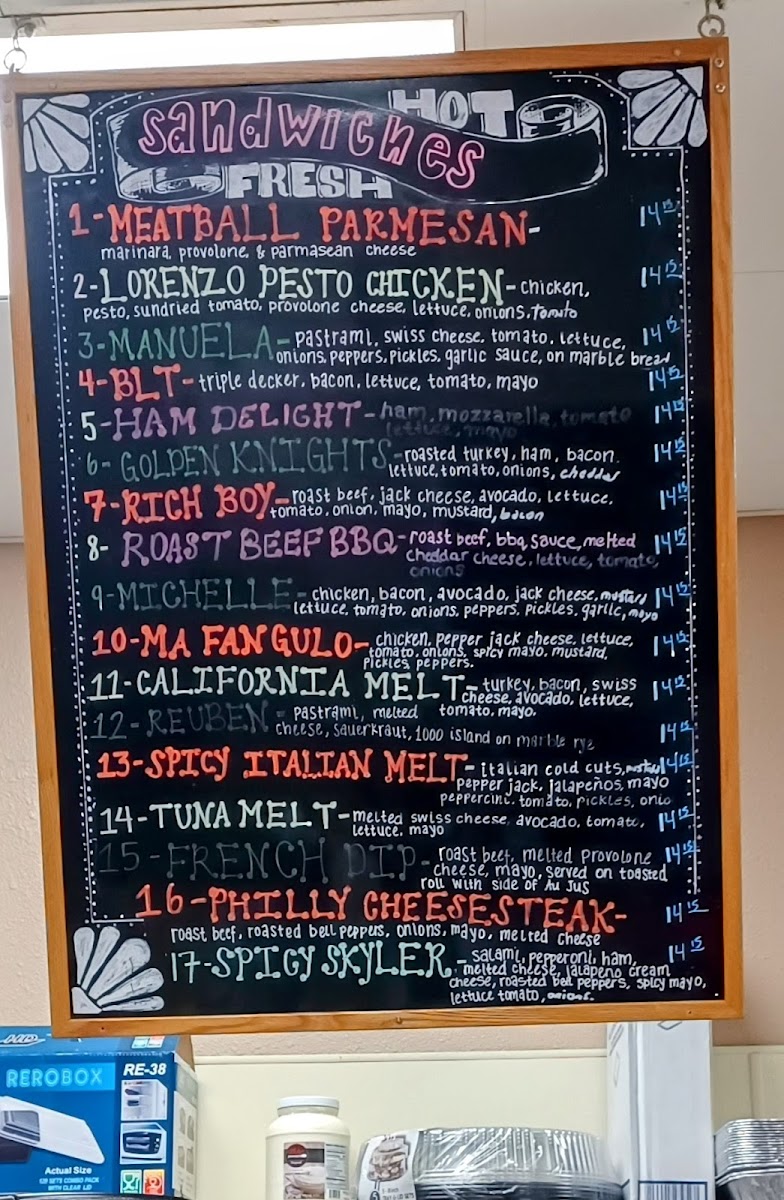 HOT
sandwiches
FRESH
1-MEATBALL PARMESAN- 14 15
marinara, provolone, & parmasean cheese
2-LORENZO PESTO CHICKEN-chicken, 14 15
pesto, sundried tomato, provolone cheese, lettuce, onions, Tomato
3-MANUELA-pastrami, swiss cheese. tomato. lettuce, 14 15
onions, peppers, pickles, garlic sauce, on marble bread
4-BLT-triple decker, bacon, lettuce, tomato, mayo 14 15
5-HAM DELIGHT-ham, mozzarella, tomato 14 15
lettuce, mayo
6-GOLDEN KNIGHTS-roasted turkey, ham, bacon 14 15
lettuce, tomato, onions, cheddar
7-RICH BOY-roast beef, jack cheese, avocado, lettuce, 14 15
tomato, onion, mayo, mustard, bacon
8- ROAST BEEF BBQ-roast beef, bbq sauce, melted 14 15
cheddar cheese, lettuce, tomato,
onions
9-MICHELLE-chicken, bacon, avocado, jack cheese, mustard 14 15
lettuce, tomato, onions, peppers, pickles, garlic, mayo
10-MA FAN GULO-chicken, pepper jack cheese, lettuce, 14 15
tomato, onions, spicy mayo, mustard,
pickles peppers.
11-CALIFORNIA MELT-turkey, bacon, swiss 14 15
cheese, avocado, lettuce,
tomato, mayo.
12-REUBEN-pastrami, melted 14 15
cheese, sauerkraut, 1000 island on marble rye
13-SPICY ITALIAN MELT-italian cold cuts, mustard 14 15
pepper jack, jalapeños, mayo
peppercini, tomato, pickles, onio
14-TUNA MELT-melted swiss cheese, avocado, tomato, 14 15
lettuce, mayo
15-FRENCH DIP-roast beef, melted provolone 14 15
cheese, mayo, served on toasted
roll with side of Au Jus
16-PHILLY CHEESESTEAK- 14 15
roast beef, roasted bell peppers, onions, mayo, melted cheese
17-SPICY SKYLER-salami, pepperoni, ham, 14 15
melted cheese, jalapeno cream
cheese, roasted bell peppers, spicy mayo,
lettuce tomato, onions.
HD
REROBOX RE-38
Actual Size
120 SETS COMBO PACK
WITH CLEAR LID